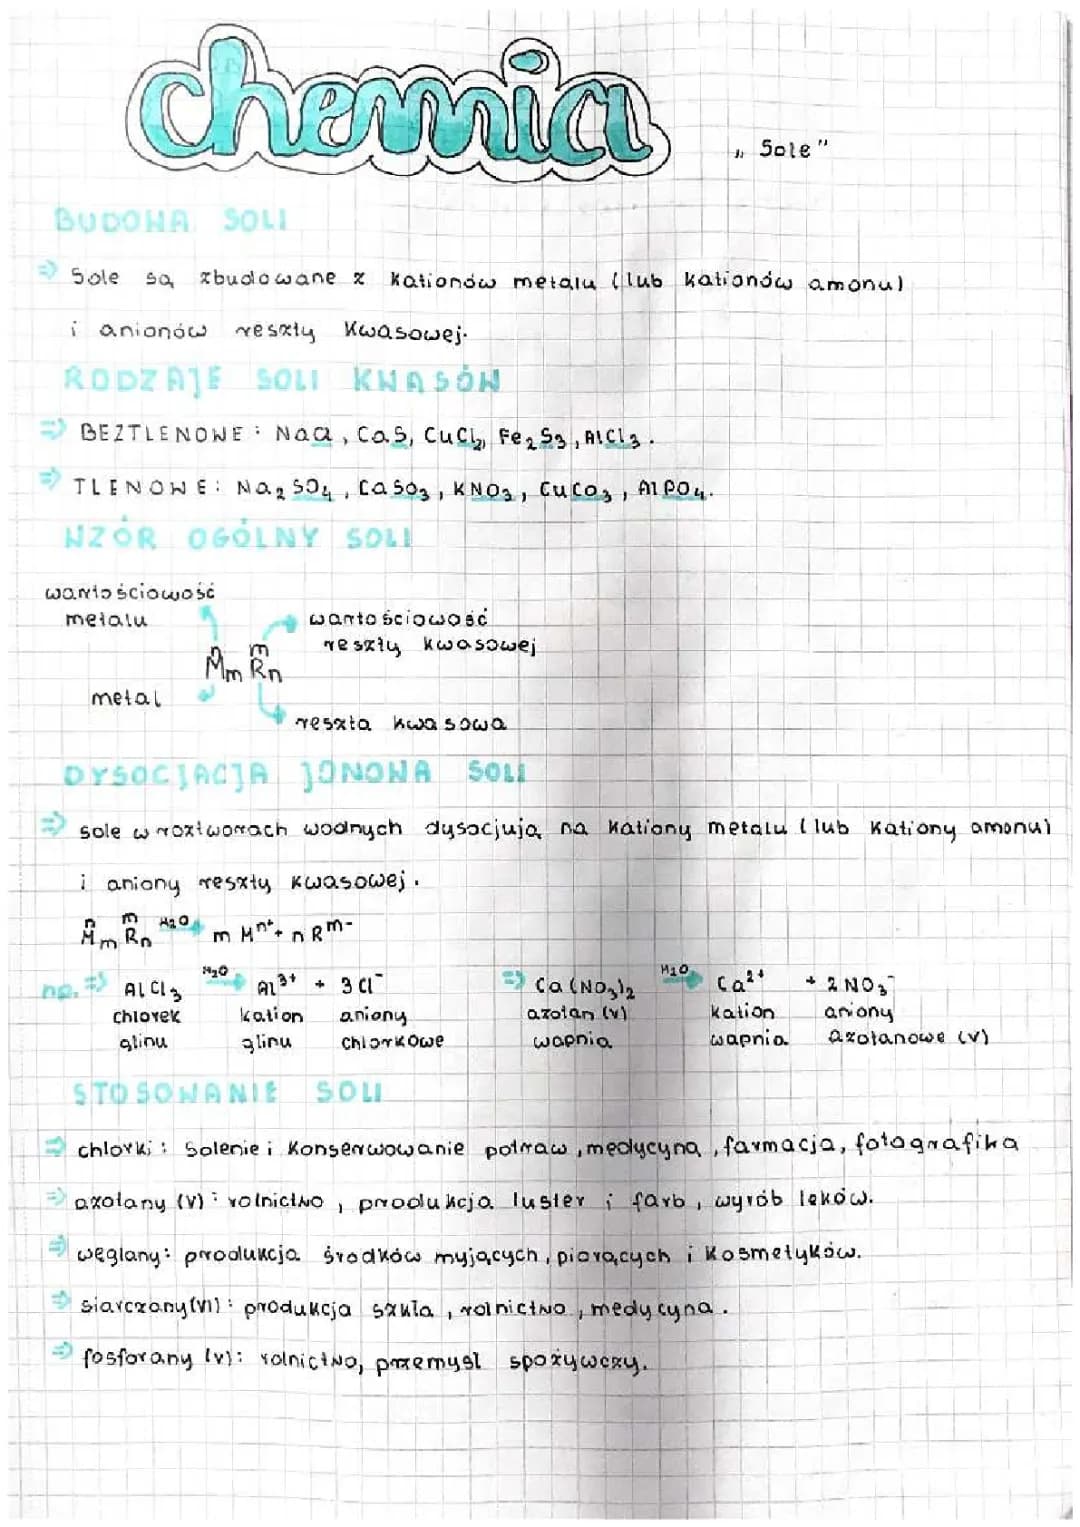 chemia
„Sole"
BUDOWA SOLI
⇒ Sole są zbudowane z kationów metalu (lub kationów amonu)
i anionów reszty kwasowej.
RODZAJE SOLI KWASÓW
⇒ BEZTLENOWE: NaCl, CaS, CuCl₂, Fe₂S₃, AlCl₃.
⇒ TLENOWE: Na₂SO₄, CaSO₃, KNO₃, CuCO₃, AlPO₄.
WZÓR OGÓLNY SOLI
wartościowość
metalu
wartościowość
reszty kwasowej
n m
Mm Rn
metal
reszta kwasowa
DYSOCJACJA JONOWA SOLI
⇒ sole w roztworach wodnych dysocjują na kationy metalu (lub kationy amonu)
i aniony reszty kwasowej.
n m H₂O
Mm Rn → m Mⁿ⁺ + n Rᵐ⁻
np. ⇒ AlCl₃ H₂O→ Al³⁺ + 3Cl⁻ ⇒ Ca(NO₃)₂ H₂O→ Ca²⁺ + 2NO₃⁻
chlorek kation aniony azotan (V) kation aniony
glinu glinu chlorkowe wapnia wapnia azotanowe (V)
STOSOWANIE SOLI
⇒ chlorki: Solenie i konserwowanie potraw, medycyna, farmacja, fotografika
⇒ azotany (V): rolnictwo, produkcja luster i farb, wyrób leków.
⇒ węglany: produkcja środków myjących, piorących i kosmetyków.
⇒ siarczany(VI): produkcja szkła, rolnictwo, medycyna.
⇒ fosforany (V): rolnictwo, przemysł spożywczy.